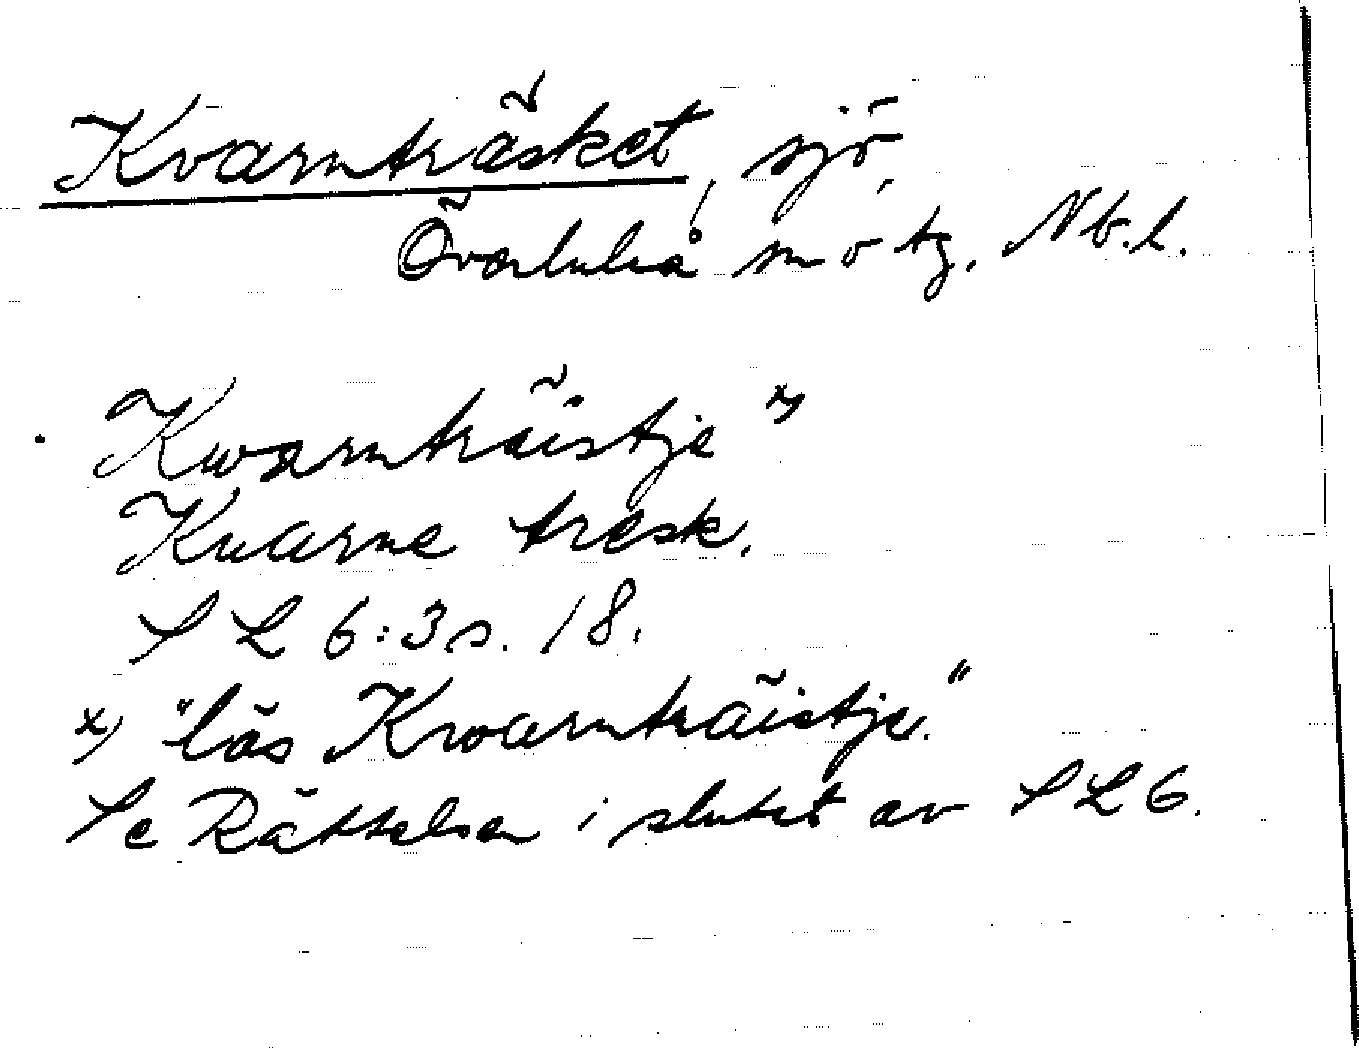 Kvarnträsket, sjö,
Överluleå sn o tg, Nb.l.
Kwarnträistje x)
Kuarne tresk.
SL 6:3 s. 18.
x) "läs Kwarnträistje."
Se Rättelser i slutet av SL 6.